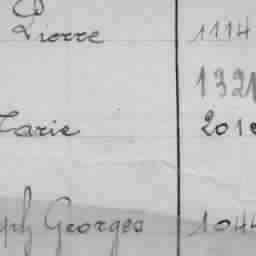 Pierre 1114
132
Marie 201
Georges 104